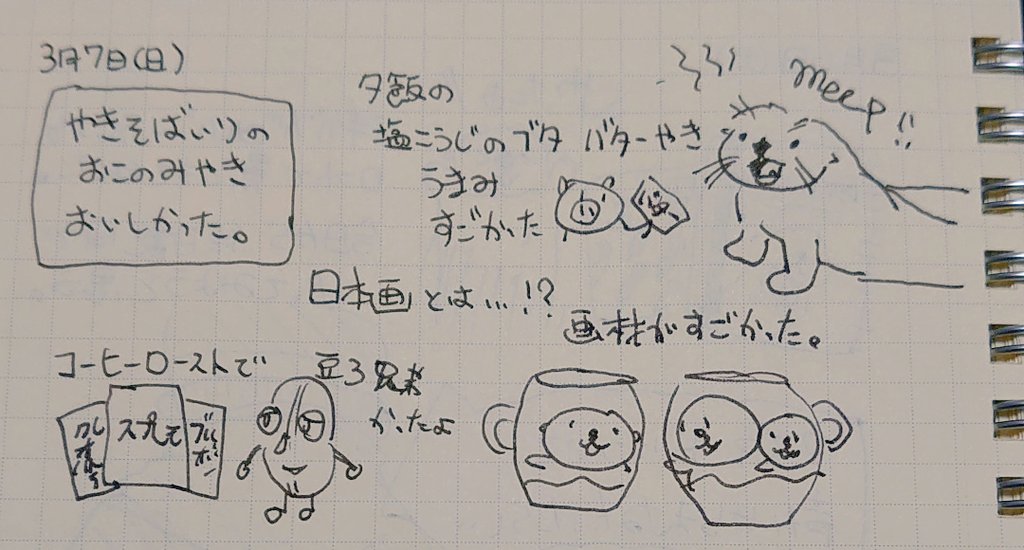 3月7日(日)
やきそばいりの
おこのみやき
おいしかった。
夕飯の
塩こうじのブタ バターやき
うまみ
すごかった
meep!!
日本画とは…!?
画材がすごかった。
コーヒーローストで
豆3兄弟
かったよ
スプレモ
ブルボン